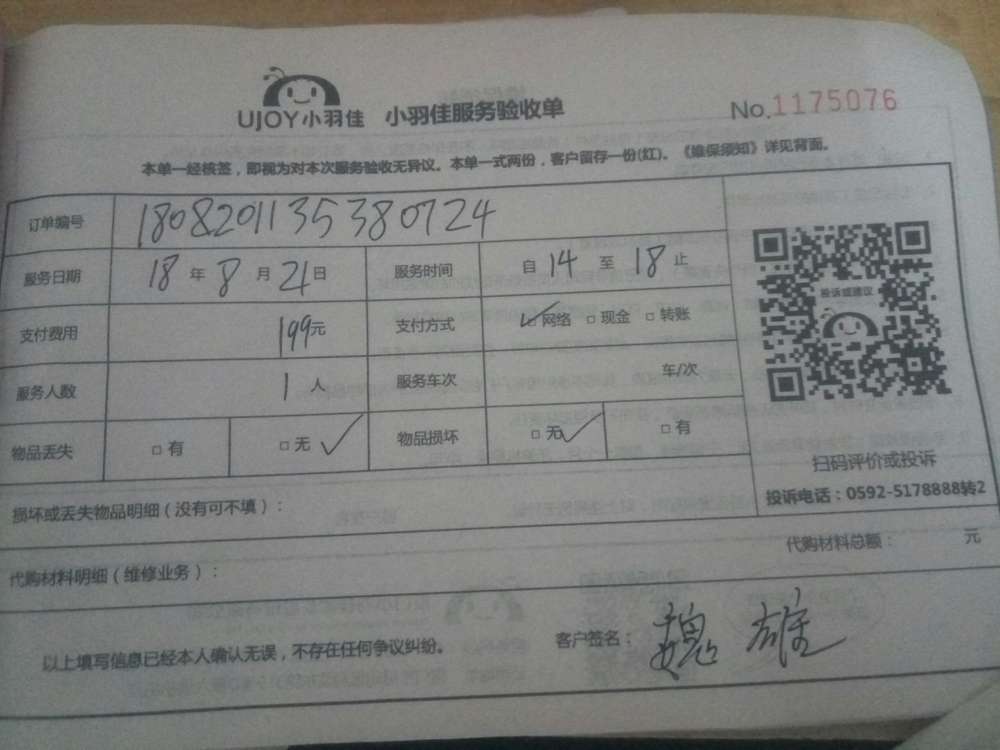 UJOY小羽佳 小羽佳服务验收单 No.1175076
本单一经核签，即视为对本次服务验收无异议。本单一式两份，客户留存一份(红)。《维保须知》详见背面。
订单编号 1808201135380724
服务日期 18年8月21日 服务时间 自14至18止
投诉或建议
支付费用 199元 支付方式 ☑网络 □现金 □转账
服务人数 1人 服务车次 车/次
物品丢失 □有 □无✓ 物品损坏 □无✓ □有
扫码评价或投诉
投诉电话：0592-5178888转2
损坏或丢失物品明细（没有可不填）：
代购材料明细（维修业务）： 代购材料总额： 元
以上填写信息已经本人确认无误，不存在任何争议纠纷。 客户签名：魏雄